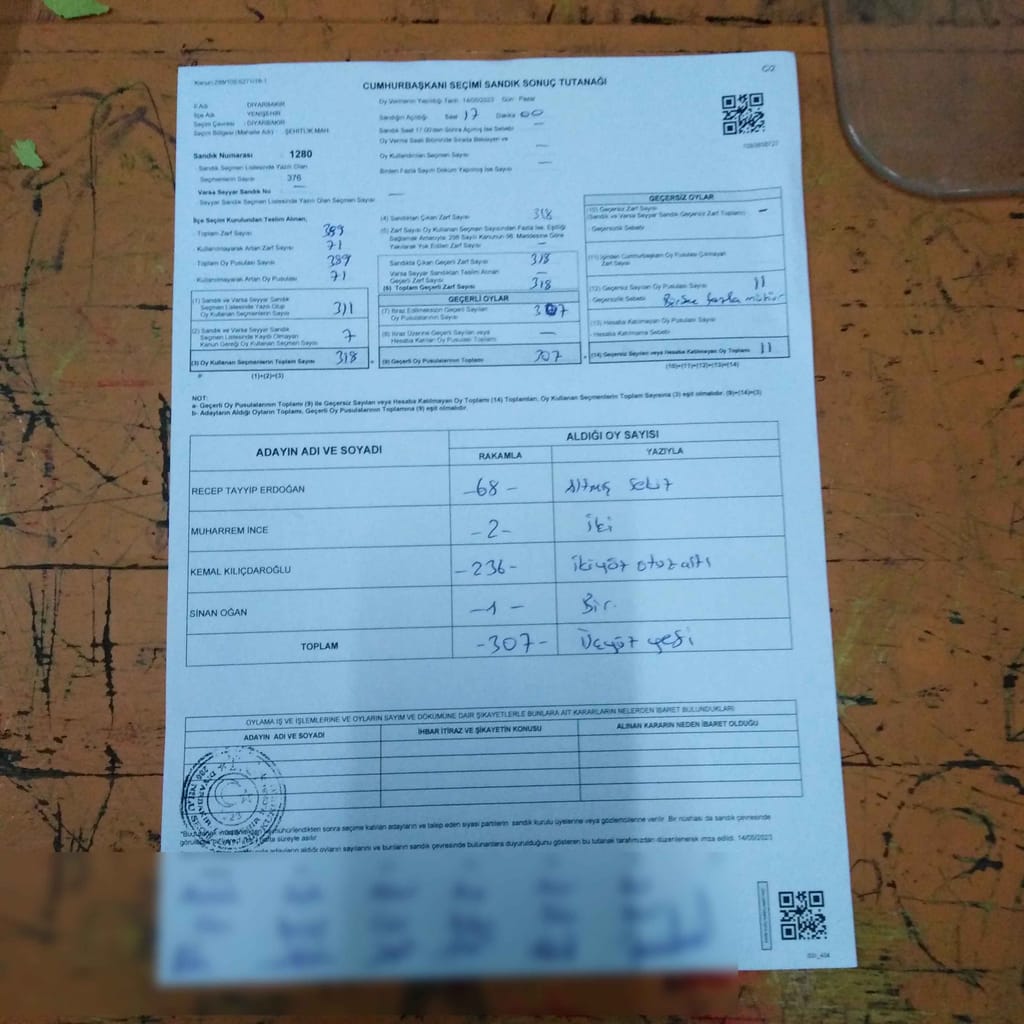 CUMHURBAŞKANI SEÇİMİ SANDIK SONUÇ TUTANAĞI
İl Adı : DİYARBAKIR
İlçe Adı : YENİŞEHİR
Seçim Çevresi : DİYARBAKIR
Seçim Bölgesi (Mahalle Adı) : ŞEHİTLİK MAH.
Sandık Numarası : 1280
Sandık Seçmen Listesinde Yazılı Olan
Seçmenlerin Sayısı : 376
Varsa Seyyar Sandık No
Seyyar Sandık Seçmen Listesinde Yazılı Olan Seçmen Sayısı
Oy Vermenin Yapıldığı Tarih: 14/05/2023 Gün : Pazar
Sandığın Açıldığı Saat 17 Dakika 00
Sandık Saat 17.00'den Sonra Açılmış İse Sebebi
Oy Verme Saati Bitiminde Sırada Bekleyen ve
Oy Kullandırılan Seçmen Sayısı
Birden Fazla Sayım Döküm Yapılmış İse Sayısı
İlçe Seçim Kurulundan Teslim Alınan,
Toplam Zarf Sayısı 389
Kullanılmayarak Artan Zarf Sayısı 71
Toplam Oy Pusulası Sayısı 389
Kullanılmayarak Artan Oy Pusulası 71
(1) Sandık ve Varsa Seyyar Sandık
Seçmen Listesinde Yazılı Olup
Oy Kullanan Seçmenlerin Sayısı 311
(2) Sandık ve Varsa Seyyar Sandık
Seçmen Listesinde Kaydı Olmayan
Kanun Gereği Oy Kullanan Seçmen Sayısı 7
(3) Oy Kullanan Seçmenlerin Toplam Sayısı 318
(1)+(2)=(3)
(4) Sandıktan Çıkan Zarf Sayısı 318
(5) Zarf Sayısı Oy Kullanan Seçmen Sayısından Fazla İse, Eşitliği
Sağlamak Amacıyla; 298 Sayılı Kanunun 98. Maddesine Göre
Yakılarak Yok Edilen Zarf Sayısı
Sandıkta Çıkan Geçerli Zarf Sayısı 318
Varsa Seyyar Sandıktan Teslim Alınan
Geçerli Zarf Sayısı
(6) Toplam Geçerli Zarf Sayısı 318
GEÇERLİ OYLAR
(7) İtiraz Edilmeksizin Geçerli Sayılan
Oy Pusulalarının Sayısı 307
(8) İtiraz Üzerine Geçerli Sayılan veya
Hesaba Katılan Oy Pusulası Toplamı
(9) Geçerli Oy Pusulalarının Toplamı 307
GEÇERSİZ OYLAR
(10) Geçersiz Zarf Sayısı
(Sandık ve Varsa Seyyar Sandık Geçersiz Zarf Toplamı)
Geçersizlik Sebebi
(11) İçinden Cumhurbaşkanı Oy Pusulası Çıkmayan
Zarf Sayısı
(12) Geçersiz Sayılan Oy Pusulası Sayısı 11
Geçersizlik Sebebi Birden fazla mühür
(13) Hesaba Katılmayan Oy Pusulası Sayısı
Hesaba Katılmama Sebebi
(14) Geçersiz Sayılan veya Hesaba Katılmayan Oy Toplamı 11
(10)+(11)+(12)+(13)=(14)
NOT:
a- Geçerli Oy Pusulalarının Toplamı (9) ile Geçersiz Sayılan veya Hesaba Katılmayan Oy Toplamı (14) Toplamları, Oy Kullanan Seçmenlerin Toplam Sayısına (3) eşit olmalıdır. (9)+(14)=(3)
b- Adayların Aldığı Oyların Toplamı, Geçerli Oy Pusulalarının Toplamına (9) eşit olmalıdır.
ADAYIN ADI VE SOYADI
ALDIĞI OY SAYISI
RAKAMLA YAZIYLA
RECEP TAYYİP ERDOĞAN -68- Altmış Sekiz
MUHARREM İNCE -2- İki
KEMAL KILIÇDAROĞLU -236- ikiyüz otuz altı
SİNAN OĞAN -1- Bir.
TOPLAM -307- Üçyüz yedi
OYLAMA İŞ VE İŞLEMLERİNE VE OYLARIN SAYIM VE DÖKÜMÜNE DAİR ŞİKAYETLERLE BUNLARA AİT KARARLARIN NELERDEN İBARET BULUNDUKLARI
ADAYIN ADI VE SOYADI İHBAR İTİRAZ VE ŞİKAYETİN KONUSU ALINAN KARARIN NEDEN İBARET OLDUĞU
mühürlendikten sonra seçime katılan adayların ve talep eden siyasi partilerin sandık kurulu üyelerine veya gözlemcilerine verilir. Bir nüshası da sandık çevresinde
süreyle asılır.
adayların aldığı oyların sayılarını ve bunların sandık çevresinde bulunanlara duyurulduğunu gösteren bu tutanak tarafımızdan düzenlenerek imza edildi. 14/05/2023